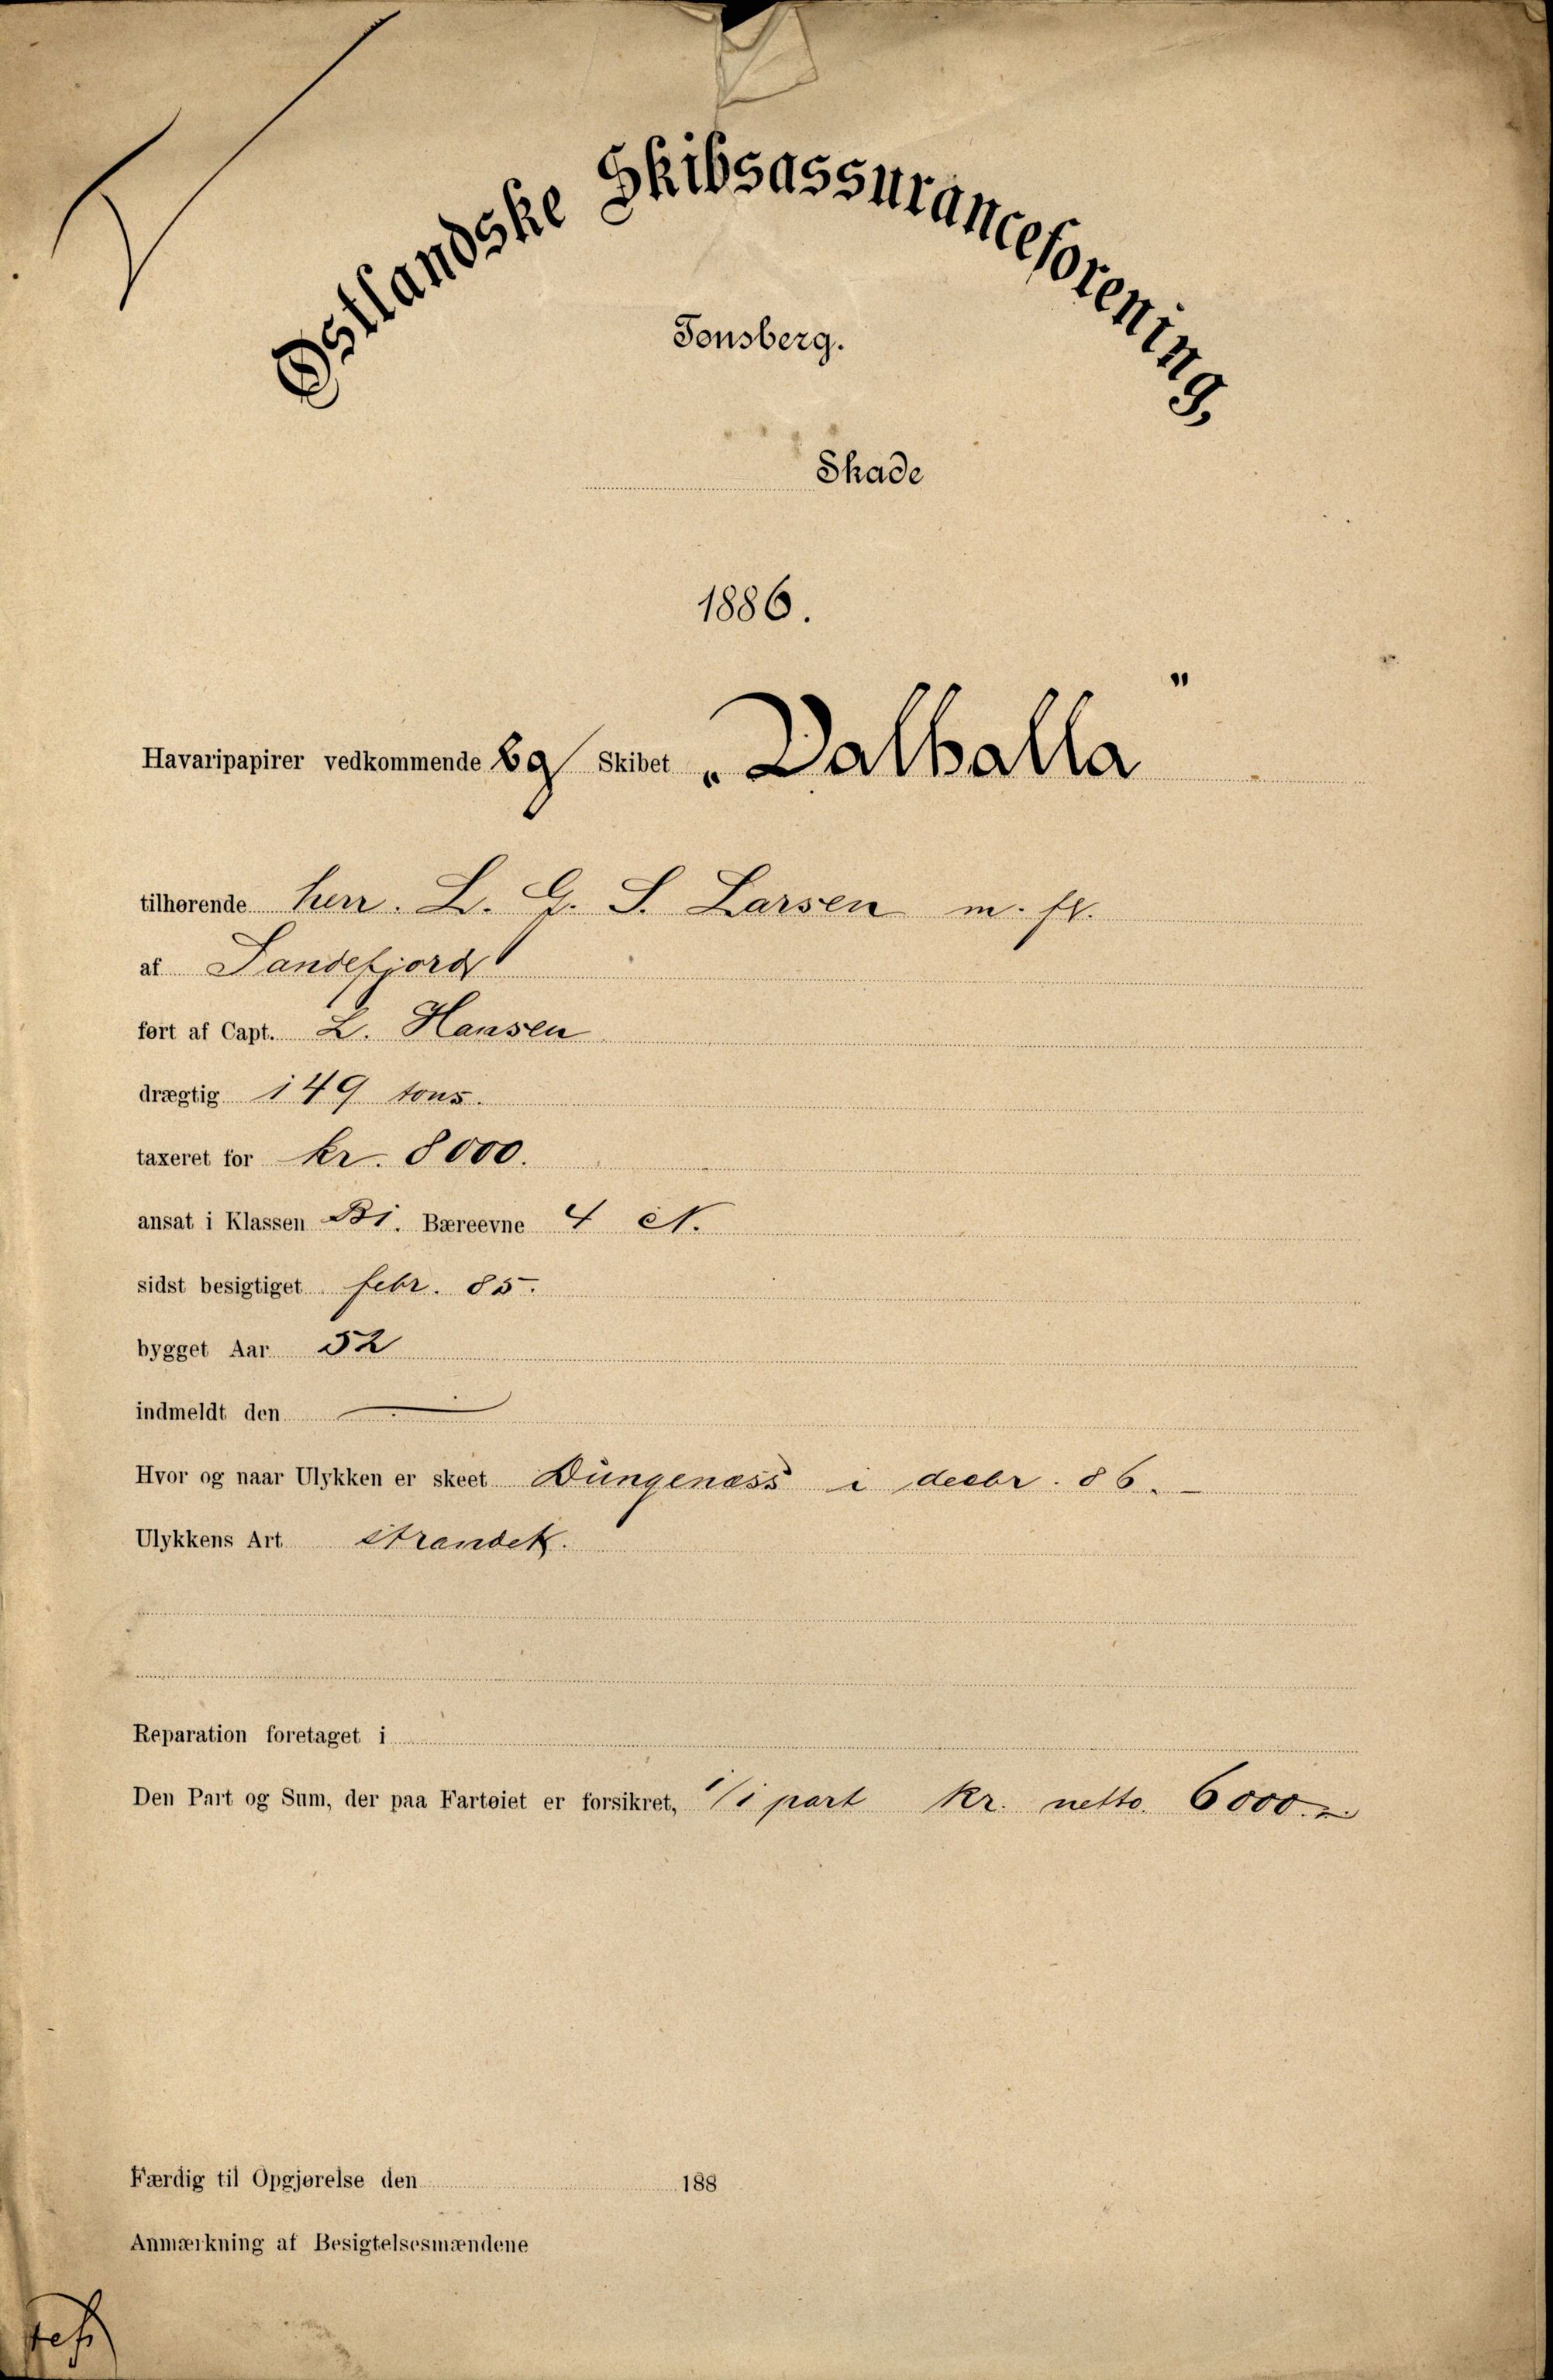 Østlandske Skibsassuranceforening,
Tønsberg.
Skade
1886.
Havaripapirer vedkommende Bg Skibet „Valhalla"
tilhørende herr. L. G. S. Larsen m. fl.
af Sandefjord
ført af Capt. L. Hansen
drægtig 149 tons.
taxeret for kr. 8000.
ansat i Klassen B1. Bæreevne 4 N.
sidst besigtiget febr. 85.
bygget Aar 52
indmeldt den
Hvor og naar Ulykken er skeet Dungenæss i decbr. 86.
Ulykkens Art strandet.
Reparation foretaget i
Den Part og Sum, der paa Fartøiet er forsikret, 1/1 part kr. netto. 6000.
Færdig til Opgjørelse den 188
Anmærkning af Besigtelsesmændene